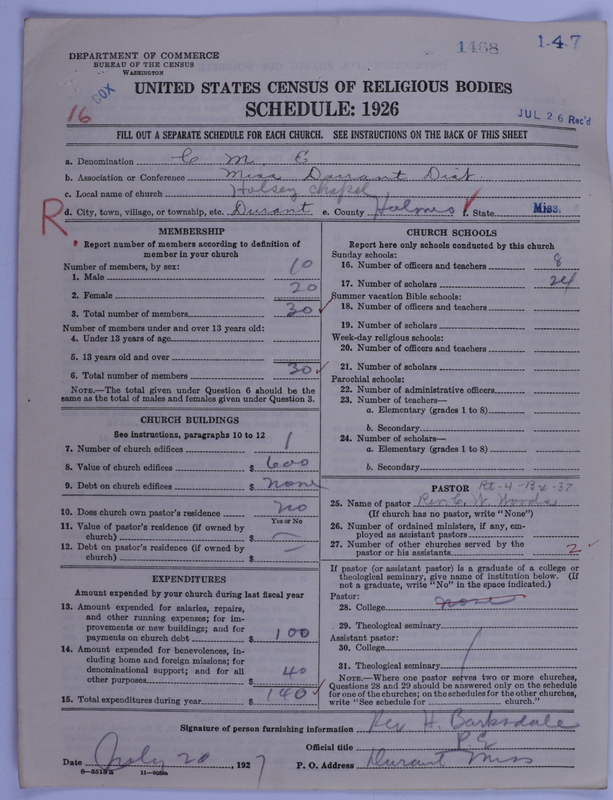 1468
1-4-7
DEPARTMENT OF COMMERCE
BUREAU OF THE CENSUS
WASHINGTON
COX
16
UNITED STATES CENSUS OF RELIGIOUS BODIES
SCHEDULE: 1926
JUL 26 Rec'd
FILL OUT A SEPARATE SCHEDULE FOR EACH CHURCH. SEE INSTRUCTIONS ON THE BACK OF THIS SHEET
a. Denomination C M E
b. Association or Conference Miss Durant Dist.
c. Local name of church Halsey Chapel
R
d. City, town, village, or township, etc. Durant e. County Holmes f. State Miss.
MEMBERSHIP
Report number of members according to definition of
member in your church
Number of members, by sex:
1. Male 10
2. Female 20
3. Total number of members 30
Number of members under and over 13 years old:
4. Under 13 years of age
5. 13 years old and over
6. Total number of members 30
NOTE.—The total given under Question 6 should be
same as the total of males and females given under Question 3.
CHURCH BUILDINGS
See instructions, paragraphs 10 to 12
7. Number of church edifices 1
8. Value of church edifices $ 600
9. Debt on church edifices $ none
10. Does church own pastor's residence no
Yes or No
11. Value of pastor's residence (if owned by
church) $ —
12. Debt on pastor's residence (if owned by
church) $ —
EXPENDITURES
Amount expended by your church during last fiscal year
13. Amount expended for salaries, repairs,
and other running expenses; for im-
provements or new buildings; and for
payments on church debt $ 100
14. Amount expended for benevolences, in-
cluding home and foreign missions; for
denominational support; and for all
other purposes $ 40
15. Total expenditures during year $ 140
CHURCH SCHOOLS
Report here only schools conducted by this church
Sunday schools:
16. Number of officers and teachers 8
17. Number of scholars 24
Summer vacation Bible schools:
18. Number of officers and teachers
19. Number of scholars
Week-day religious schools:
20. Number of officers and teachers
21. Number of scholars
Parochial schools:
22. Number of administrative officers
23. Number of teachers—
a. Elementary (grades 1 to 8)
b. Secondary
24. Number of scholars—
a. Elementary (grades 1 to 8)
b. Secondary
PASTOR Rt-4-B-x-37
25. Name of pastor Rev. C. W. Woods
(If church has no pastor, write "None")
26. Number of ordained ministers, if any, em-
ployed as assistant pastors
27. Number of other churches served by the
pastor or his assistants 2
If pastor (or assistant pastor) is a graduate of a college or
theological seminary, give name of institution below. (If
not a graduate, write "No" in the space indicated.)
Pastor:
28. College none
29. Theological seminary
Assistant pastor:
30. College
31. Theological seminary
NOTE.—Where one pastor serves two or more churches,
Questions 28 and 29 should be answered only on the schedule
for one of the churches; on the schedules for the other churches,
write "See schedule for church."
Signature of person furnishing information Rev H. Barksdale
Official title P. E
Date July 20, 1927 P. O. Address Durant Miss
8-5313a 11-9034a